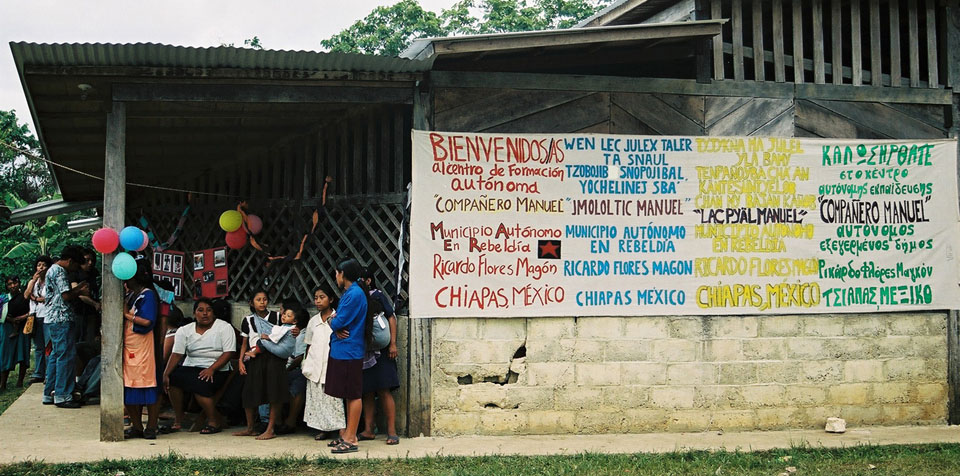 BIENVENIDOS/AS
al centro de Formación
autónoma
"COMPAÑERO MANUEL"
MUNICIPIO AUTÓNOMO
EN REBELDÍA
RICARDO FLORES MAGÓN
CHIAPAS, MÉXICO
WEN LEC JULEX TALER
TA SNAUL
TZOBOJIB SNOPOJIBAL,
YOCHELINES SBA'
"JMOLOLTIC MANUEL"
MUNICIPIO AUTÓNOMO
EN REBELDIA
RICARDO FLORES MAGON
CHIAPAS MÉXICO
"LAC PYÄL MANUEL"
MUNICIPIO AUTONOMO
EN REBELDIA
RICARDO FLORES MAGON
CHIAPAS, MÉXICO
ΚΑΛΩΣΗΡΘΑΤΕ
ΣΤΟ ΚΕΝΤΡΟ
αυτόνομης εκπαίδευσης
"COMPAÑERO MANUEL"
αυτόνομος
εξεγερμένος δήμος
Ρικάρδο Φλόρες Μαγκόν
ΤΣΙΑΠΑΣ ΜΕΞΙΚΟ